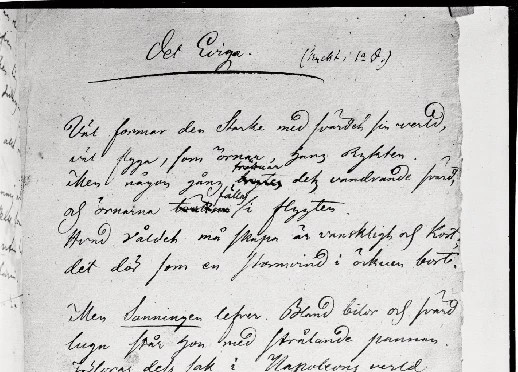 Det Eviga.
Väl formar den Starke med svärdet sin verld,
väl flyga, som örnar hans Rykten.
Men någon gång brytes det vandrande svärd,
och örnarna fällas i flygten.
Hvad Våldet må skapa är vanskligt och kort,
det dör som en Stormvind i öcknen bort.
Men Sanningen lefver. Bland bilor och svärd
lugn står hon med strålande pannan.
dess sak i Napoleons verld